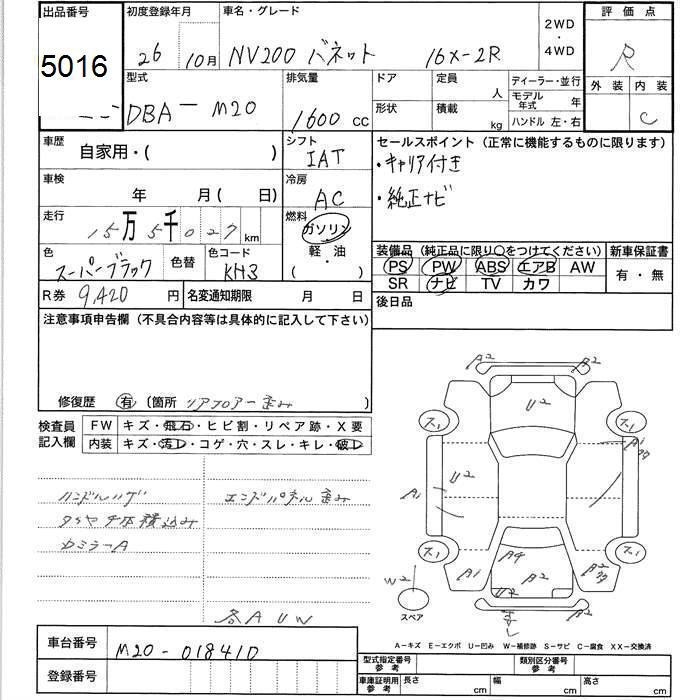 出品番号 初度登録年月 車名・グレード 2WD・4WD 評価点
5016 26 10月 NV200 バネット 16X-2R R
型式 排気量 ドア 定員 人 ディーラー・並行 外装 内装
DBA-M20 1600 cc 形状 積載 kg モデル年式 年 C
ハンドル 左・右
車歴 自家用・( ) シフト IAT セールスポイント (正常に機能するものに限ります)
・キャリア付き
車検 年 月( 日) 冷房 AC ・純正ナビ
走行 15万5千027 km 燃料 ガソリン・軽・油 ( )
色 スーパーブラック 色替 色コード KH3
装備品 (純正品に限り○をつけてください) 新車保証書
PS PW ABS エアB AW 有・無
SR ナビ TV カワ
R券 9,420 円 名変通知期限 月 日 後日品
注意事項申告欄 (不具合内容等は具体的に記入して下さい)
修復歴 有 (箇所 リアフロアー歪み )
検査員記入欄 FW キズ・飛石・ヒビ割・リペア跡・X要
内装 キズ・汚レ・コゲ・穴・スレ・キレ・破レ
ハンドルハゲ エンドパネル歪み
タイヤ 積込み
ミラーA
各AUW
A2 A2
U2
ス1 ス1
A1
U2
A1
ス1 ス1
A4
A1 B2 B2
W2 U2
B2
スペア
A-キズ E-エクボ U-凹み W-補修跡 S-サビ C-腐食 XX-交換済
車台番号 M20-018410
登録番号
型式指定番号 参考 類別区分番号 参考
車庫証明用 参考 長さ cm 幅 cm 高さ cm